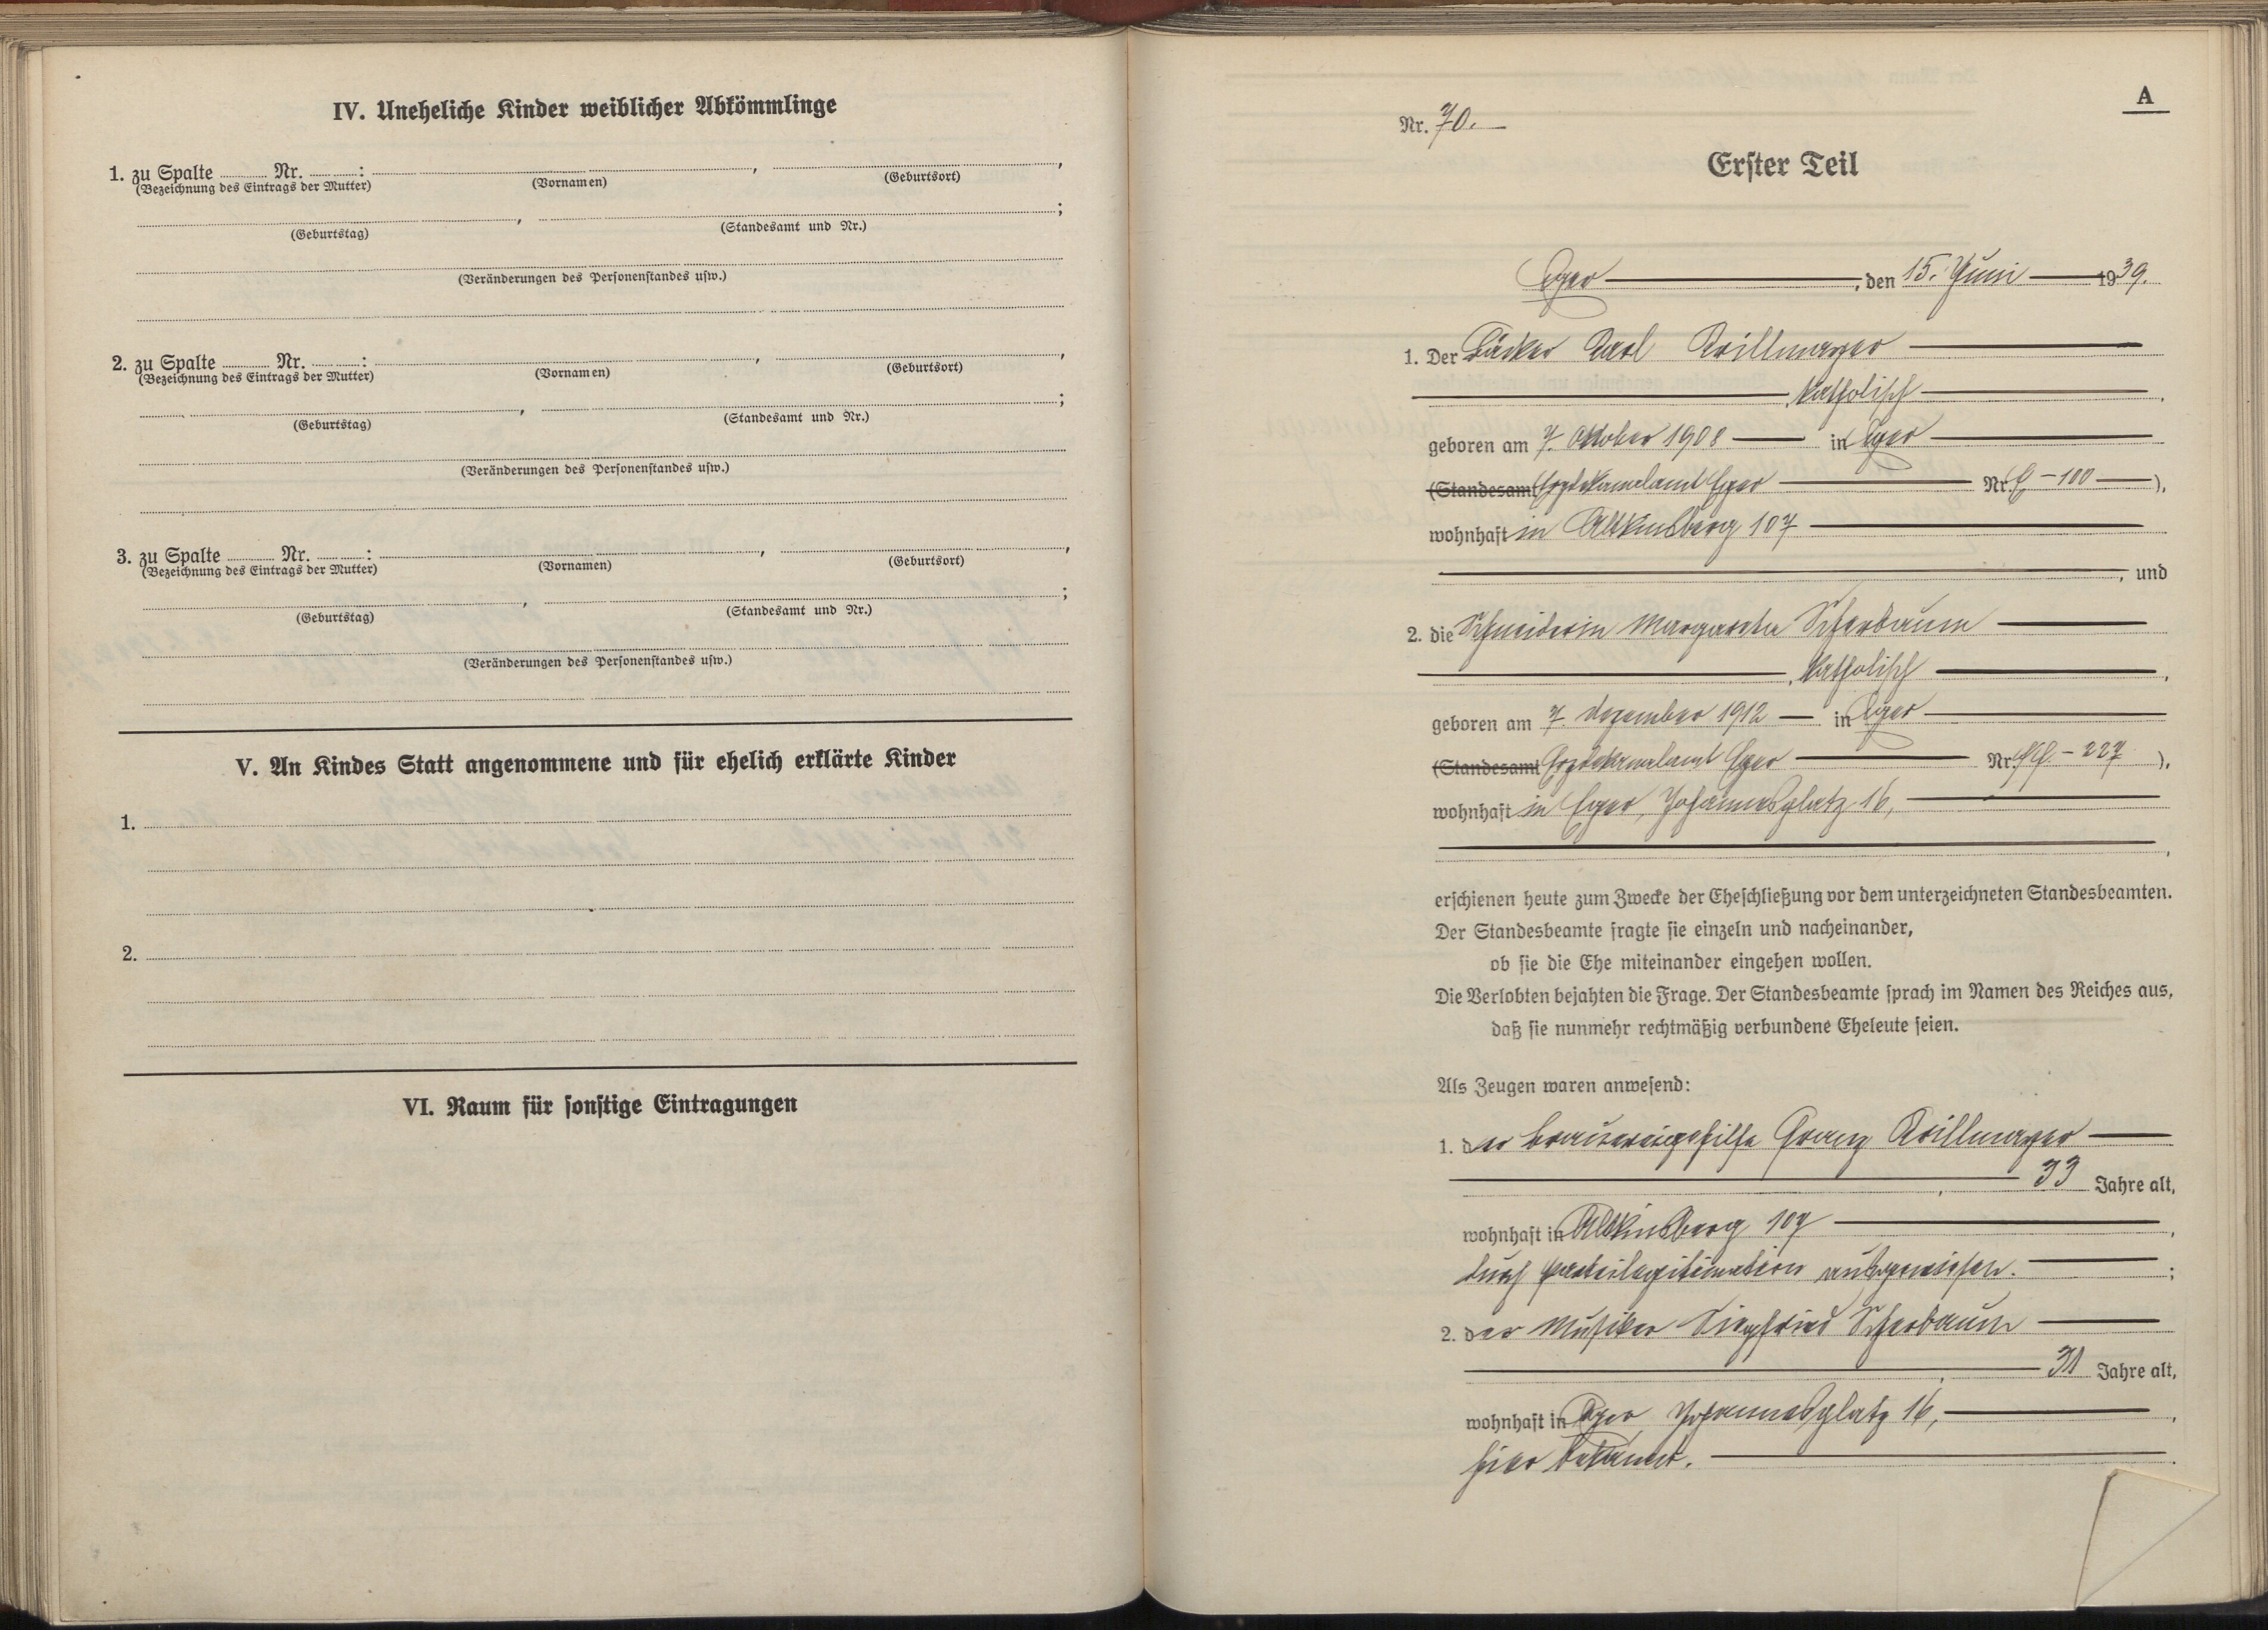 IV. Uneheliche Kinder weiblicher Abkömmlinge
1. zu Spalte ........ Nr. ........:
(Bezeichnung des Eintrags der Mutter) (Vornamen) (Geburtsort)
(Geburtstag) (Standesamt und Nr.)
(Veränderungen des Personenstandes usw.)
2. zu Spalte ........ Nr. ........:
(Bezeichnung des Eintrags der Mutter) (Vornamen) (Geburtsort)
(Geburtstag) (Standesamt und Nr.)
(Veränderungen des Personenstandes usw.)
3. zu Spalte ........ Nr. ........:
(Bezeichnung des Eintrags der Mutter) (Vornamen) (Geburtsort)
(Geburtstag) (Standesamt und Nr.)
(Veränderungen des Personenstandes usw.)
V. An Kindes Statt angenommene und für ehelich erklärte Kinder
1.
2.
VI. Raum für sonstige Eintragungen
A
Nr. 70.
Erster Teil
Eger, den 15. Juni 1939.
1. Der Bäcker Karl Krillmayer
, katholisch,
geboren am 7. Oktober 1908 in Eger
(Standesamt Erzdekanalamt Eger Nr. - 100),
wohnhaft in Altkinsberg 107
, und
2. die Schneiderin Margareta Scherbaum
, katholisch,
geboren am 7. Dezember 1912 in Eger
(Standesamt Erzdekanalamt Eger Nr. - 227),
wohnhaft in Eger, Johannesplatz 16,
erschienen heute zum Zwecke der Eheschließung vor dem unterzeichneten Standesbeamten.
Der Standesbeamte fragte sie einzeln und nacheinander,
ob sie die Ehe miteinander eingehen wollen.
Die Verlobten bejahten die Frage. Der Standesbeamte sprach im Namen des Reiches aus,
daß sie nunmehr rechtmäßig verbundene Eheleute seien.
Als Zeugen waren anwesend:
1. der Brauereigehilfe Franz Krillmayer
, 33 Jahre alt,
wohnhaft in Altkinsberg 107,
durch Parteilegitimation ausgewiesen.;
2. der Musiker Siegfried Scherbaum
, 31 Jahre alt,
wohnhaft in Eger, Johannesplatz 16,
hier bekannt.